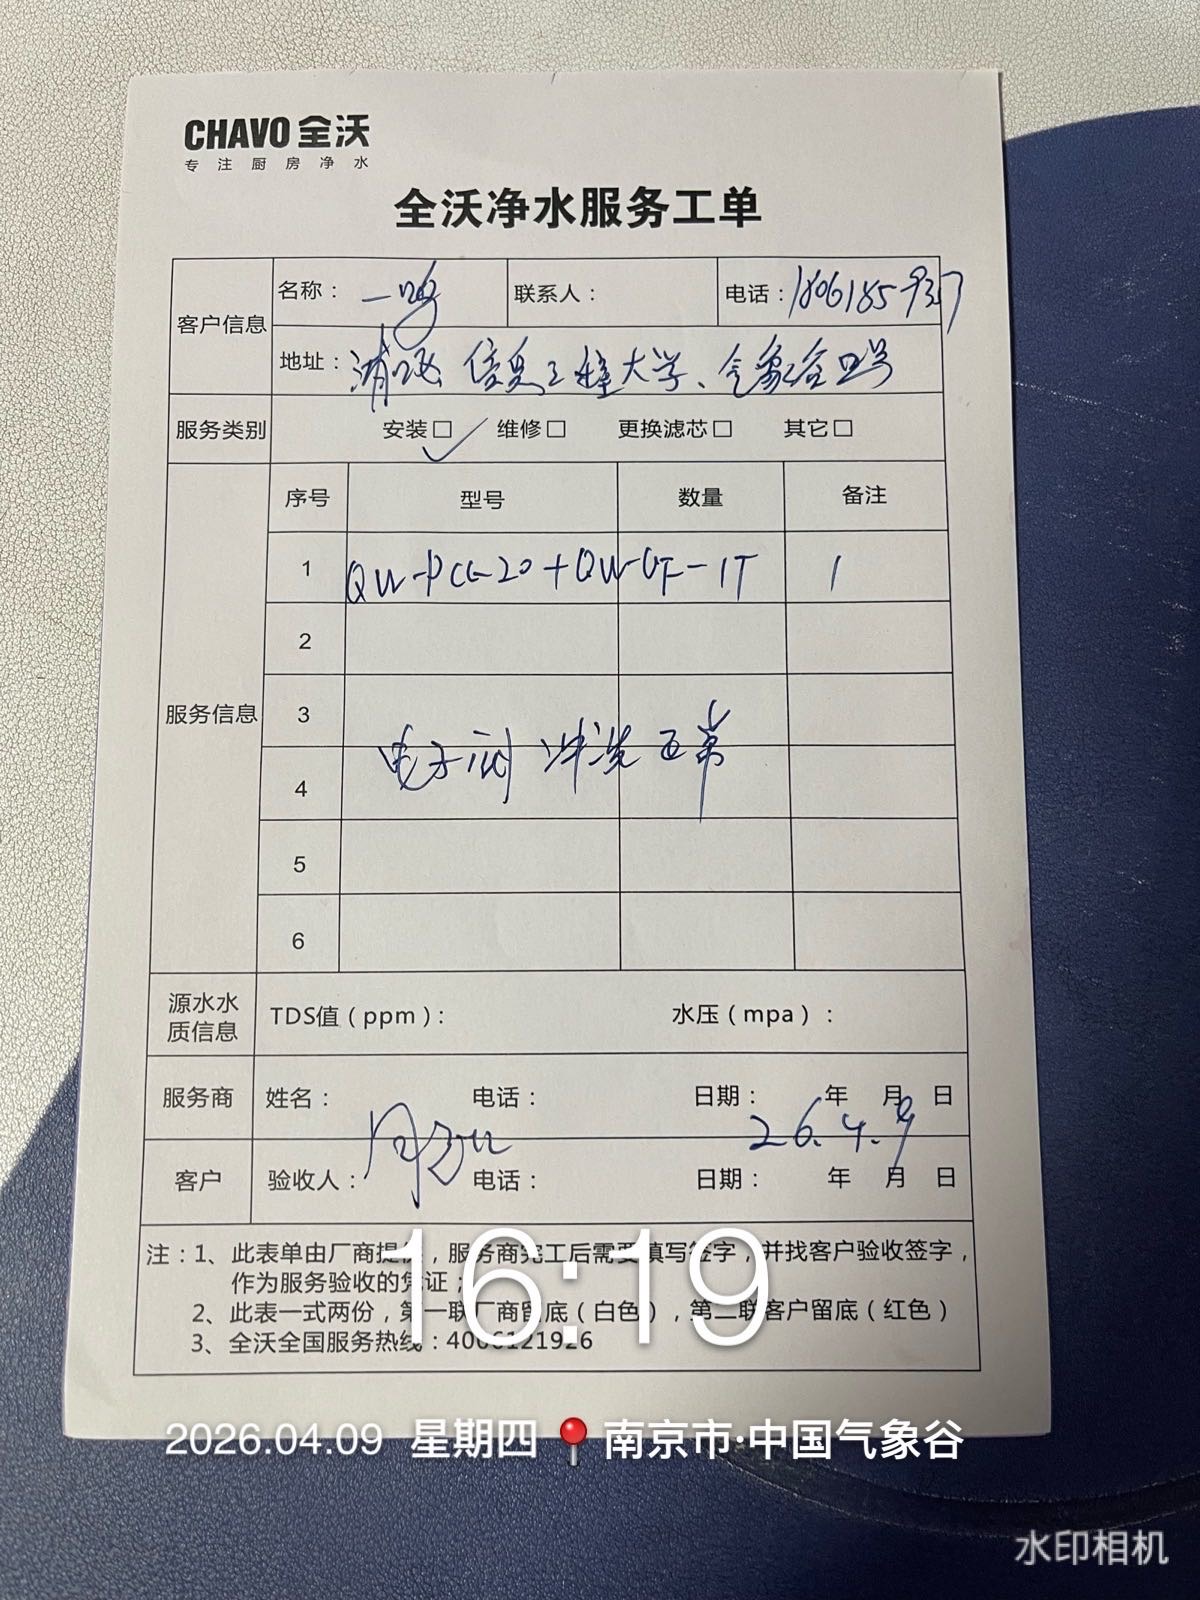 CHAVO 全沃
专注厨房净水
全沃净水服务工单
客户信息 名称：一鸣 联系人： 电话：
地址：浦口区 信息工程大学、气象谷四号
服务类别 安装□ ✓ 维修□ 更换滤芯□ 其它□
服务信息 序号 型号 数量 备注
1 QW-PCG-20+QW-UF-1T 1
2
3
电子阀 冲洗正常
4
5
6
源水水质信息 TDS值（ppm）： 水压（mpa）：
服务商 姓名： 电话： 日期： 年 月 日
26.4.9
客户 验收人： 电话： 日期： 年 月 日
注：1、此表单由厂商提供，服务商完工后需要填写签字，并找客户验收签字，
作为服务验收的凭证；
2、此表一式两份，第一联厂商留底（白色），第二联客户留底（红色）
3、全沃全国服务热线：4006121926
16:19
2026.04.09 星期四 南京市·中国气象谷
水印相机